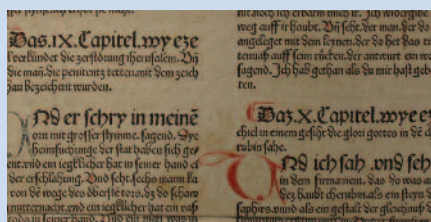 Das.IX.Capitel.wy eze
verkündet die zerstörung iherusalem. Vñ
die mañ. die penitentz tetten. mit dem zeich
hau bezeichent wurden.
ND er schry in meinē
orn mit grosser stymme. sagend. Dye
heimsuchunge der stat haben sich ge
ent. vnd ein iegklicher hat in seiner hand
der erschlahung. Vnd seht. sechs mann ka
von dē wege des öberstē tors. dz do schaw
mitternacht. vnd ein iegklicher hat ein
in seiner hand. Vnd ein man was in
nit noch ich erbarm mich ir. Ich widergibe
weg auff ir haubt. Vñ seht. der man. der do
angeleget mit dem leynen. der do het das
auff seim rücken. der antwurt ein
sagend. Ich hab gethan als du mir hast geb
ten.
Daz.X.Capitel.wye ez
chiel in einem gesiht die glori gottes in dē
rubin sahe.
ND ich sah. vnd seh
in dem firmament. das do was
dez haubt cherubin. als ein steyn
saphirs. vnnd als ein gestalt der gleichnuß